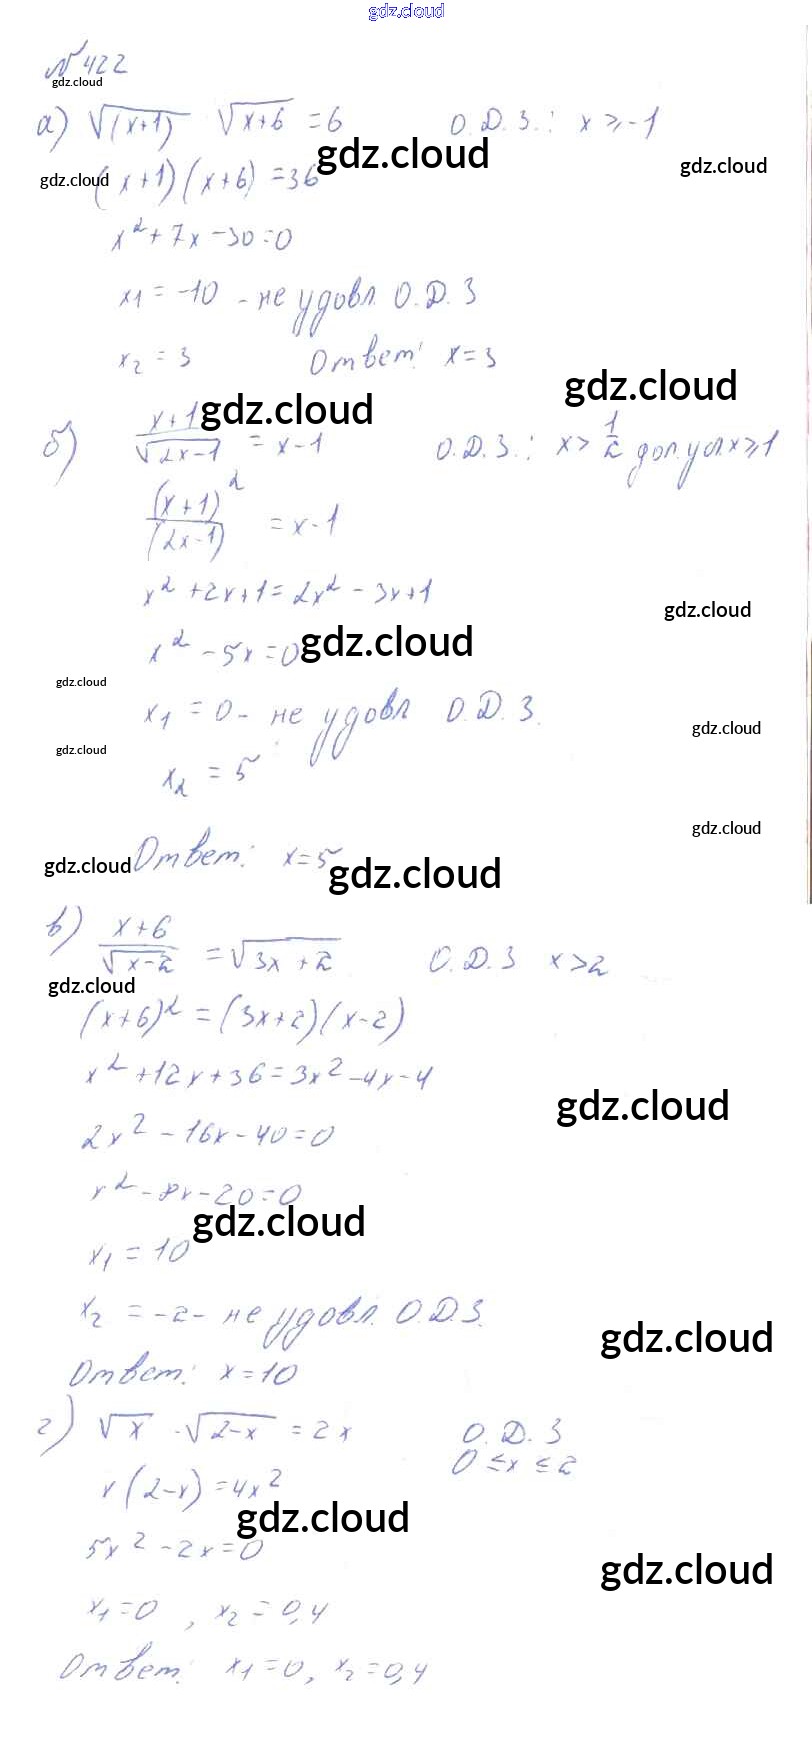 gdz.cloud
№ 422
gdz.cloud
а) √(x+1) √x+6 = 6 О.Д.З.: x ≥ -1
gdz.cloud
gdz.cloud
gdz.cloud
(x+1)(x+6) = 36
x² + 7x - 30 = 0
x₁ = -10 - не удовл. О.Д.З
x₂ = 3 Ответ: x = 3
gdz.cloud
gdz.cloud
б) x+1 / √2x-1 = x-1 О.Д.З.: x > 1/2 доп. усл. x ≥ 1
(x+1)² / (2x-1) = x-1
x² + 2x + 1 = 2x² - 3x + 1
gdz.cloud
x² - 5x = 0
gdz.cloud
gdz.cloud
x₁ = 0 - не удовл О.Д.З.
gdz.cloud
gdz.cloud
x₂ = 5
gdz.cloud
Ответ: x = 5
gdz.cloud
gdz.cloud
в) x+6 / √x-2 = √3x+2 О.Д.З x > 2
gdz.cloud
(x+6)² = (3x+2)(x-2)
x² + 12x + 36 = 3x² - 4x - 4
gdz.cloud
2x² - 16x - 40 = 0
x² - 8x - 20 = 0
gdz.cloud
x₁ = 10
x₂ = -2 - не удовл. О.Д.З.
gdz.cloud
Ответ: x = 10
г) √x · √2-x = 2x О.Д.З
0 ≤ x ≤ 2
x(2-x) = 4x²
gdz.cloud
5x² - 2x = 0
gdz.cloud
x₁ = 0, x₂ = 0,4
Ответ: x₁ = 0, x₂ = 0,4